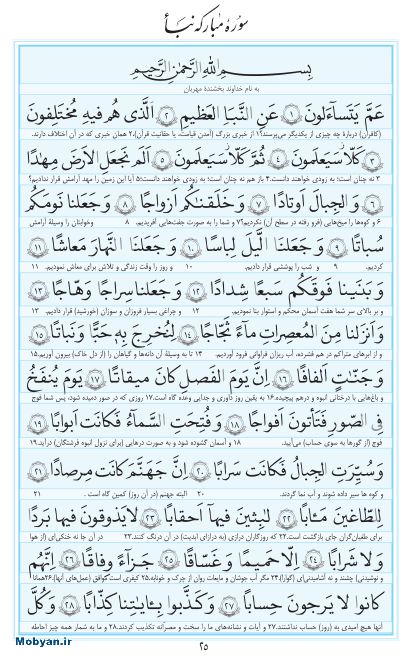 سورهٔ مبارکه نبأ
بِسْمِ اللهِ الرَّحْمٰنِ الرَّحیمِ
به نام خداوند بخشندهٔ مهربان
عَمَّ یَتَسآءَلونَ ۱ عَنِ النَّبَاِ الْعَظیمِ ۲ اَلَّذی هُم فیهِ مُختَلِفونَ
(کافران) درباره چه چیزی از یکدیگر می‌پرسند؟۱ از خبری بزرگ (آمدن قیامت، یا حقانیت قرآن)،۲ همان خبری که در آن اختلاف دارند.
۳ کَلّا سَیَعلَمونَ ۴ ثُمَّ کَلّا سَیَعلَمونَ ۵ اَلَم نَجعَلِ الاَرضَ مِهٰدًا
۳ نه چنان است؛ به زودی خواهند دانست.۴ باز هم نه چنان است؛ به زودی خواهند دانست۵ آیا این زمین را مهد آرامش قرار ندادیم؟
۶ وَ الجِبالَ اَوتادًا ۷ وَ خَلَقنٰکُم اَزواجًا ۸ وَ جَعَلنا نَومَکُم
۶ و کوه‌ها را میخ‌هایی (فرو رفته در سطح آن) نکردیم؟۷ و شما را به صورت جفت‌هایی آفریدیم. ۸ وخوابتان را وسیلهٔ آرامش
سُباتًا ۹ وَ جَعَلنَا الَّیلَ لِباسًا ۱۰ وَ جَعَلنَا النَّهارَ مَعاشًا ۱۱
کردیم. ۹ و شب را پوششی قرار دادیم. ۱۰ و روز را وقت زندگی و تلاش برای معاش نمودیم. ۱۱
وَ بَنَینا فَوقَکُم سَبعًا شِدادًا ۱۲ وَ جَعَلنا سِراجًا وَهّاجًا ۱۳
و بر بالای سر شما هفت آسمان محکم و استوار بنا نمودیم. ۱۲ و چراغی بسیار فروزان و سوزان (خورشید) قرار دادیم ۱۳
وَ اَنزَلنا مِنَ المُعصِراتِ مآءً ثَجّاجًا ۱۴ لِنُخرِجَ بِهٖ حَبًّا وَ نَباتًا ۱۵
و از ابرهای متراکم در هم فشرده، آب ریزان فراوانی فرود آوردیم. ۱۴ تا به وسیلهٔ آن دانه‌ها و گیاهان را (از دل خاک) بیرون آوریم.۱۵
وَ جَنّٰتٍ اَلفافًا ۱۶ اِنَّ یَومَ الفَصلِ کانَ میقاتًا ۱۷ یَومَ یُنفَخُ
و باغ‌هایی با درختانی انبوه و درهم پیچیده.۱۶ به یقین روز داوری و جدایی وعده گاه است.۱۷ روزی که در صور دمیده شود، پس شما فوج
فِی الصّورِ فَتَأتونَ اَفواجًا ۱۸ وَ فُتِحَتِ السَّمآءُ فَکانَت اَبوابًا ۱۹
فوج (از گورها به سوی حساب) می‌آیید. ۱۸ و آسمان گشوده شود و به صورت درهایی (برای نزول انبوه فرشتگان) درآید.۱۹
وَ سُیِّرَتِ الجِبالُ فَکانَت سَرابًا ۲۰ اِنَّ جَهَنَّمَ کانَت مِرصادًا ۲۱
و کوه ها سیر داده شوند و آب نما گردند. ۲۰ البته جهنم (در آن روز) کمین گاه است . ۲۱
لِلطّاغینَ مَـٔابًا ۲۲ لٰبِثینَ فیهآ اَحقابًا ۲۳ لا یَذوقونَ فیها بَردًا
برای طغیان‌گران جای بازگشت است.۲۲ که روزگاران درازی (به درازای ابدیت) در آن درنگ کنند.۲۳ در آن جا نه خنکی‌ای (از هوا
وَ لا شَرابًا ۲۴ اِلّا حَمیمًا وَ غَسّاقًا ۲۵ جَزآءً وِفاقًا ۲۶ اِنَّهُم
و نوشیدنی) چشند و نه آشامیدنی‌ای (گوارا).۲۴ مگر آب جوشان و مایعات روان از چرک و خونابه.۲۵ کیفری است موافق (عمل‌های آنها).۲۶همانا
کانوا لا یَرجونَ حِسابًا ۲۷ وَ کَذَّبوا بِـٔایٰتِنا کِذّابًا ۲۸ وَ کُلَّ
آنها هیچ امیدی به (روز) حساب نداشتند.۲۷ و آیات و نشانه‌های ما را سخت و مصرانه تکذیب کردند.۲۸ و ما به شمار همه چیز احاطه
Mobyan.ir
۲۵